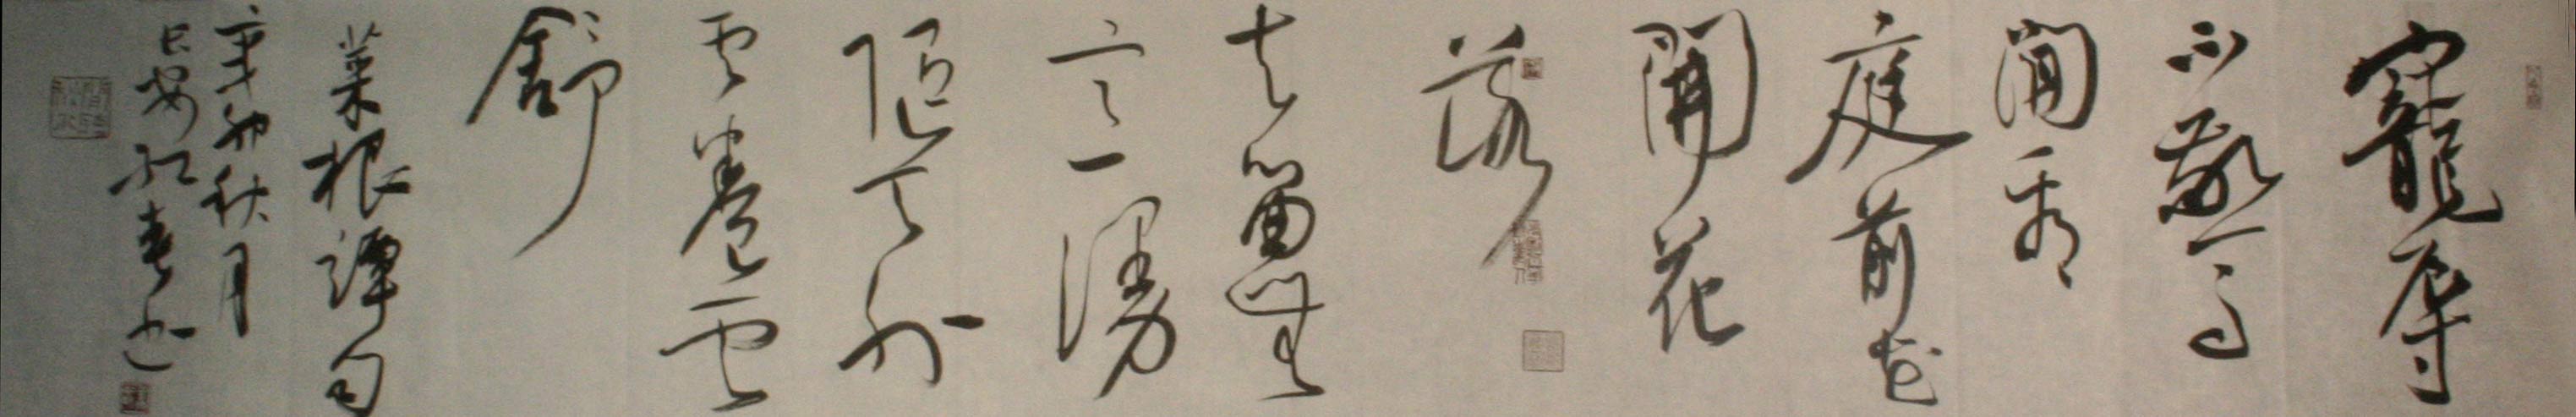 寵辱
不驚
閒看
庭前花
開花
落
去留無
意漫
隨天外
雲卷雲
舒
菜根譚句
辛卯秋月
長安春書